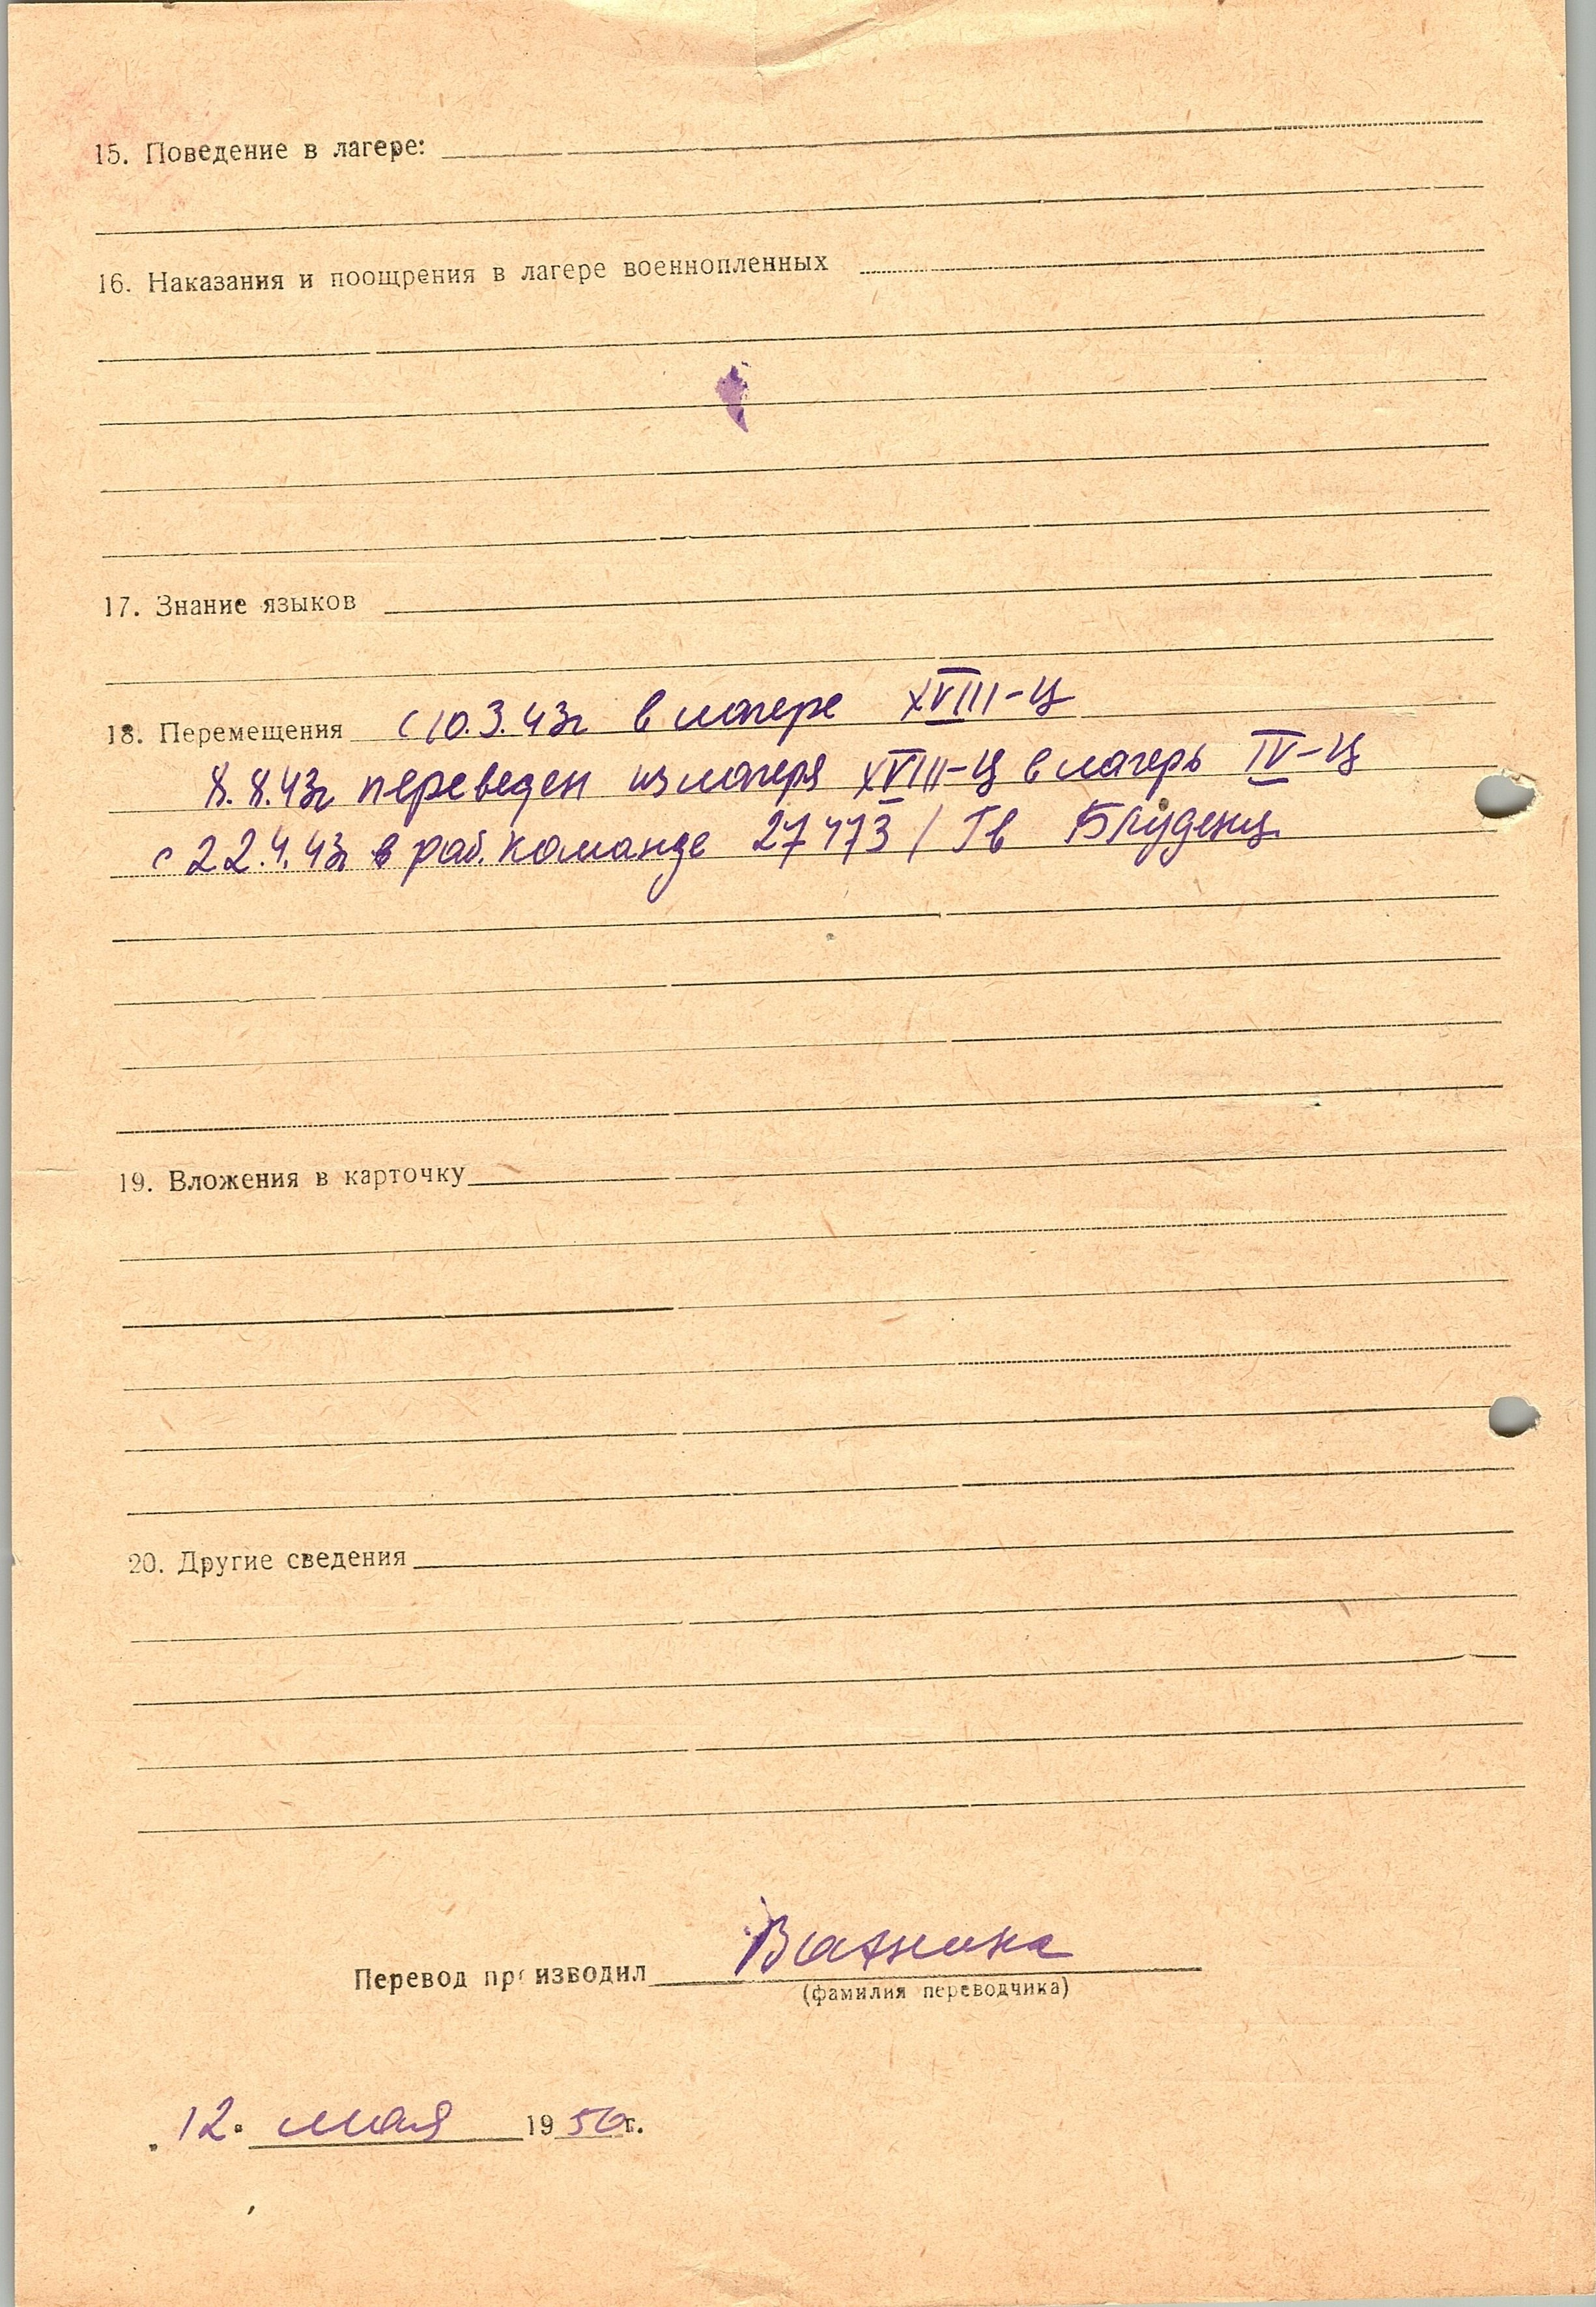 15. Поведение в лагере:
16. Наказания и поощрения в лагере военнопленных
17. Знание языков
18. Перемещения с 10.3.43г в лагере XVIII-Ц
8.8.43г переведен из лагеря XVIII-Ц в лагерь IV-Ц
с 22.4.43г в раб. команде 27473 / Гв Блуденц
19. Вложения в карточку
20. Другие сведения
Перевод производил
(фамилия переводчика)
12. мая 1950г.